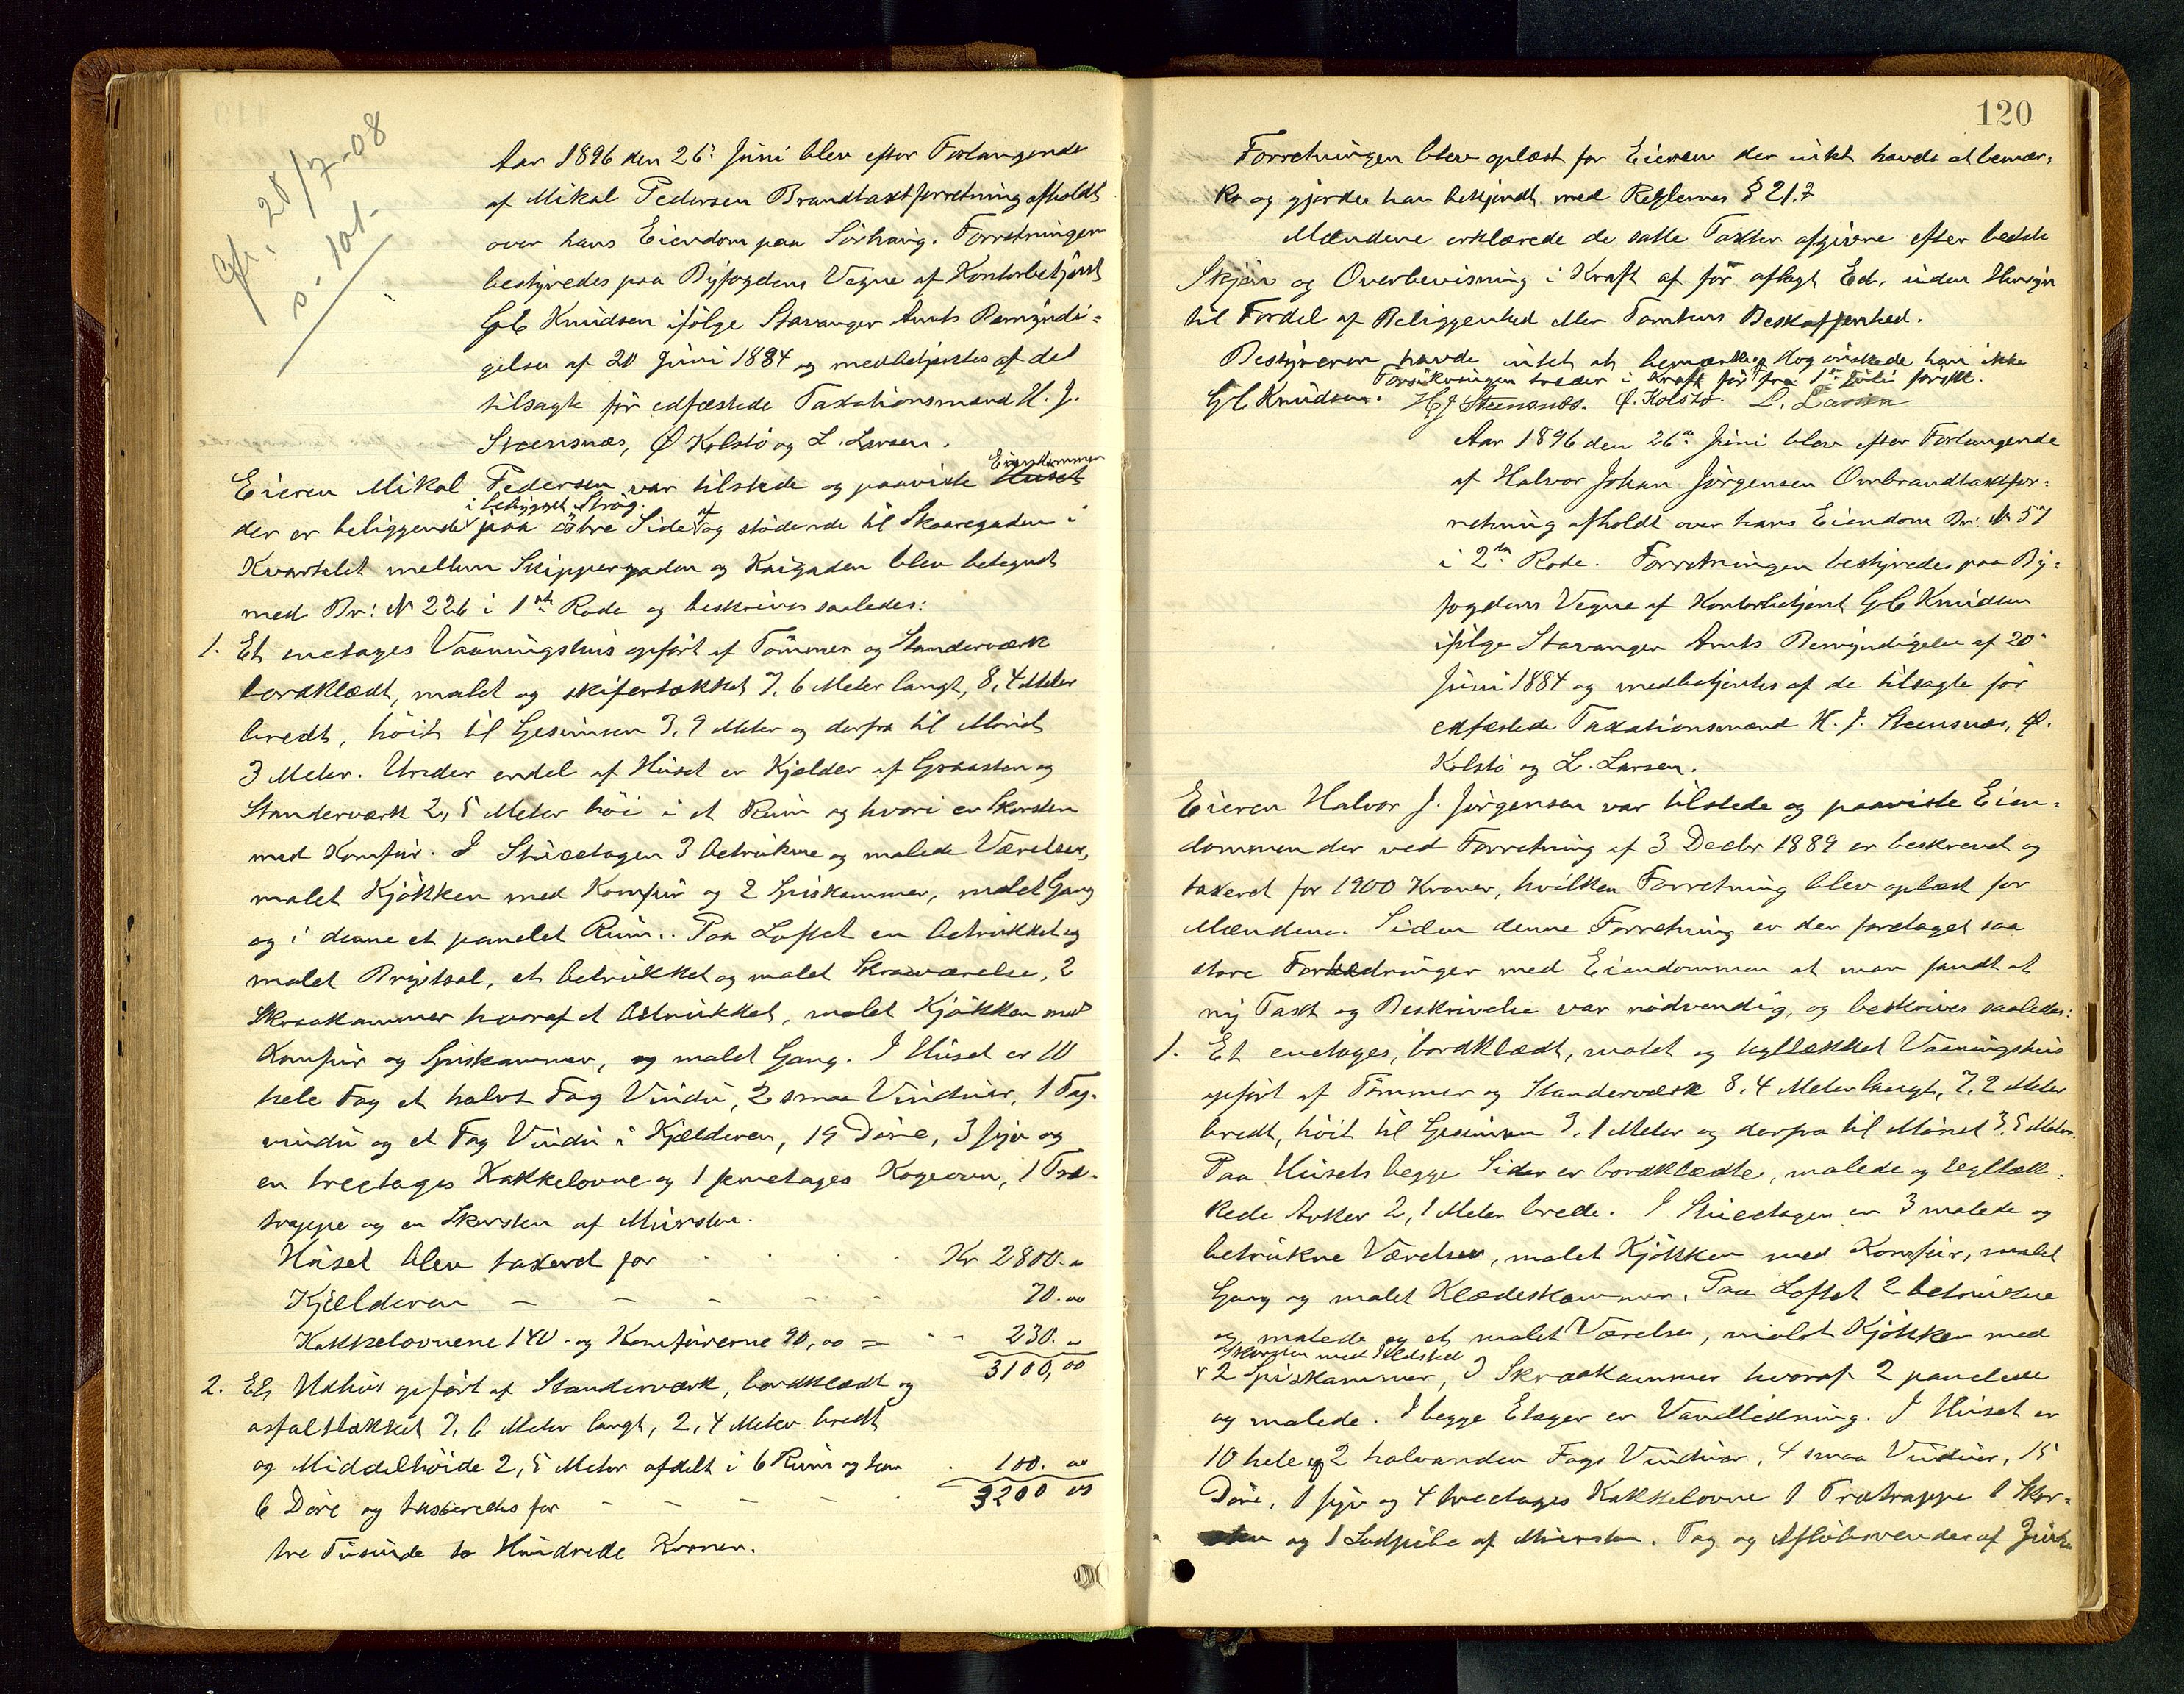 Gfr. 28/7-08
s. 101.
Aar 1896 den 26de Juni blev efter Forlangende
af Mikal Pedersen Brandtaxtforretning afholdt
over hans Eiendom paa Sørhaug. Forretningen
bestyredes paa Byfogdens Vegne af Kontorbetjent
G C Knudsen ifølge Stavanger Amts Bemyndi=
gelse af 20 Juni 1884 og medbetjentes af de
tilsagte før edfæstede Taxationsmænd H. J.
Steensnæs, Ø Kolstø og L. Larsen.
Eieren Mikal Pedersen var tilstede og paaviste Huset Eiendommen
der er beliggende i bebygget Strøg paa østre Side af og stødende til Skaaregaden i
Kvartalet mellem Skippergaden og Kaigaden blev betegnet
med Br: № 226 i 1ste Rode og beskrives saaledes:
1. Et enetages Vaaningshus opført af Tømmer og Standerværk
bordklædt, malet og skifertækket 7,6 Meter langt, 8,4 Meter
bredt, høit til Gesimsen 3,9 Meter og derfra til Mønet
3 Meter. Under endel af Huset er Kjælder af Graasten og
Standerværk 2,5 Meter høi i et Rum og hvori er Skorsten
med Komfur. I Stueetagen 3 betrukne og malede Værelser,
malet Kjøkken med Komfur og 2 Spiskammer, malet Gang
og i denne et panelet Rum. Paa Loftet en betrukket og
malet Brystsal, et betrukket og malet Skraaværelse, 2
Skraakammer hvoraf et betrukket, malet Kjøkken med
Komfur og Spiskammer, og malet Gang. I Huset er 10
hele Fag et halvt Fag Vindu, 2 smaa Vinduer, 1 Tag-
vindu og et Fag Vindu i Kjælderen, 19 Døre, 3 fyr og
en treetages Kakkelovne og 1 femetages Kogeovn, 1 Træ-
trappe og en Skorsten af Mursten.
Huset blev taxeret for Kr 2800.00
Kjælderen — — — — — 70.00
Kakkelovnene 140.- og Komfurerne 90,00 = 230.00
3100,00
2. Et Udhus opført af Standerværk, bordklædt og
asfalttækket 7,6 Meter langt, 2,4 Meter bredt
og Middelhøide 2,5 Meter afdelt i 6 Rum og har 100.00
6 Døre og taxeredes for — — — — 3200 00
tre Tusinde to Hundrede Kroner.
120
Forretningen blev oplæst for Eieren der intet havde at bemær=
ke og gjordes han bekjendt med Reglernes § 21.7
Mændene erklærede de satte Taxter afgivne efter bedste
Skjøn og Overbevisning i Kraft af før aflagt Ed, uden Hensyn
til Fordel af Beliggenhed eller Tomtens Beskaffenhed.
Bestyreren havde intet at bemærke, dog ønskede han ikke
Forsikringen træder i Kraft før fra 1ste Juli førstk.
G C Knudsen. H J Steensnæs. Ø. Kolstø. L. Larsen
Aar 1896 den 26de Juni blev efter Forlangende
af Halvor Johan Jørgensen Ombrandtaxtfor=
retning afholdt over hans Eiendom Br: № 57
i 2den Rode. Forretningen bestyredes paa By=
fogdens Vegne af Kontorbetjent G C Knudsen
ifølge Stavanger Amts Bemyndigelse af 20de
Juni 1884 og medbetjentes af de tilsagte før
edfæstede Taxationsmænd H. J. Steensnæs, Ø.
Kolstø og L. Larsen.
Eieren Halvor J. Jørgensen var tilstede og paaviste Eien=
dommen der ved Forretning af 3 Decbr 1889 er beskrevet og
taxeret for 1900 Kroner, hvilken Forretning blev oplæst for
Mændene. Siden denne Forretning er der foretaget saa
store Forbedringer med Eiendommen at man fandt at
ny Taxt og Beskrivelse var nødvendig, og beskrives saaledes:
1. Et enetages, bordklædt, malet og tegltækket Vaaningshus
opført af Tømmer og Standerværk 8,4 Meter langt, 7,2 Meter
bredt, høit til Gesimsen 3,1 Meter og derfra til Mønet 3,5 Meter.
Paa Husets begge Sider er bordklædte, malede og tegltæk=
kede Arker 2,1 Meter brede. I Stueetagen er 3 malede og
betrukne Værelser, malet Kjøkken med Komfur, malet
Gang og malet Klædeskammer. Paa Loftet 2 betrukne
og malede og et malet Værelse, malet Kjøkken med
Skorsten med Ildsted
2 Spiskammer, 3 Skraakammer hvoraf 2 panelede
og malede. I begge Etager er Vandledning. I Huset er
10 hele og 2 halvanden Fags Vinduer, 4 smaa Vinduer, 15
Døre, 1 fyr og 4 treetages Kakkelovne 1 Trætrappe 1 Skor=
sten og 1 Luftpibe af Mursten. Tag og Afløbsrender af Zink